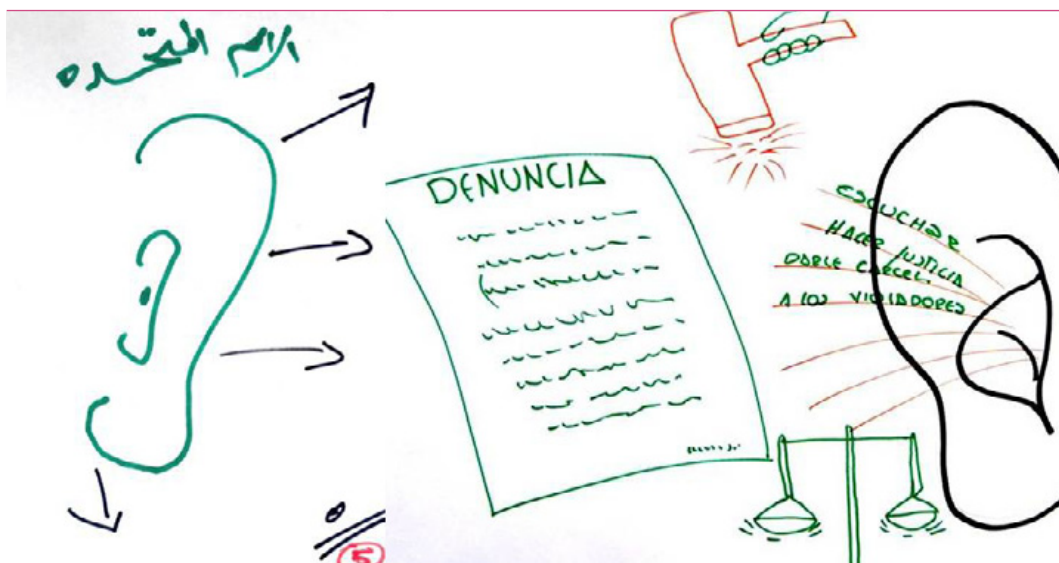 الامم المتحده
DENUNCIA
ESCUCHAR
HACER JUSTICIA
DARLE CARCEL
A LOS VIOLADORES
5